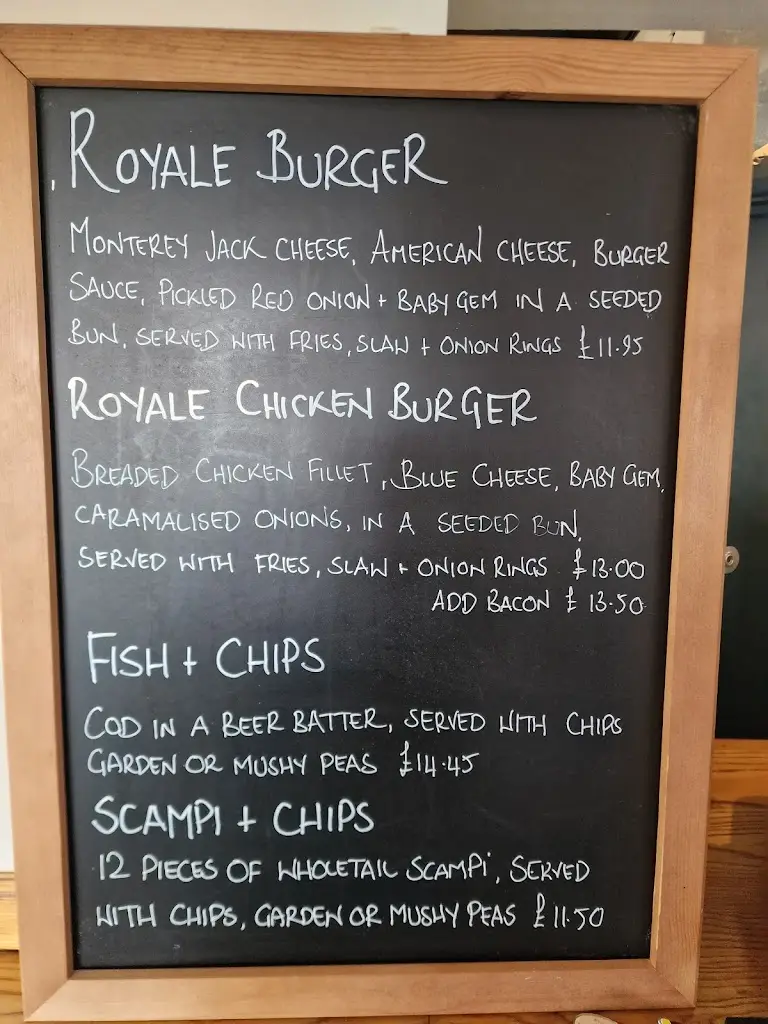 ROYALE BURGER
MONTEREY JACK CHEESE, AMERICAN CHEESE, BURGER
SAUCE, PICKLED RED ONION + BABY GEM IN A SEEDED
BUN, SERVED WITH FRIES, SLAW + ONION RINGS £11.95
ROYALE CHICKEN BURGER
BREADED CHICKEN FILLET, BLUE CHEESE, BABY GEM,
CARAMALISED ONIONS, IN A SEEDED BUN,
SERVED WITH FRIES, SLAW + ONION RINGS £13.00
ADD BACON £13.50
FISH + CHIPS
COD IN A BEER BATTER, SERVED WITH CHIPS
GARDEN OR MUSHY PEAS £14.45
SCAMPI + CHIPS
12 PIECES OF WHOLETAIL SCAMPI, SERVED
WITH CHIPS, GARDEN OR MUSHY PEAS £11.50